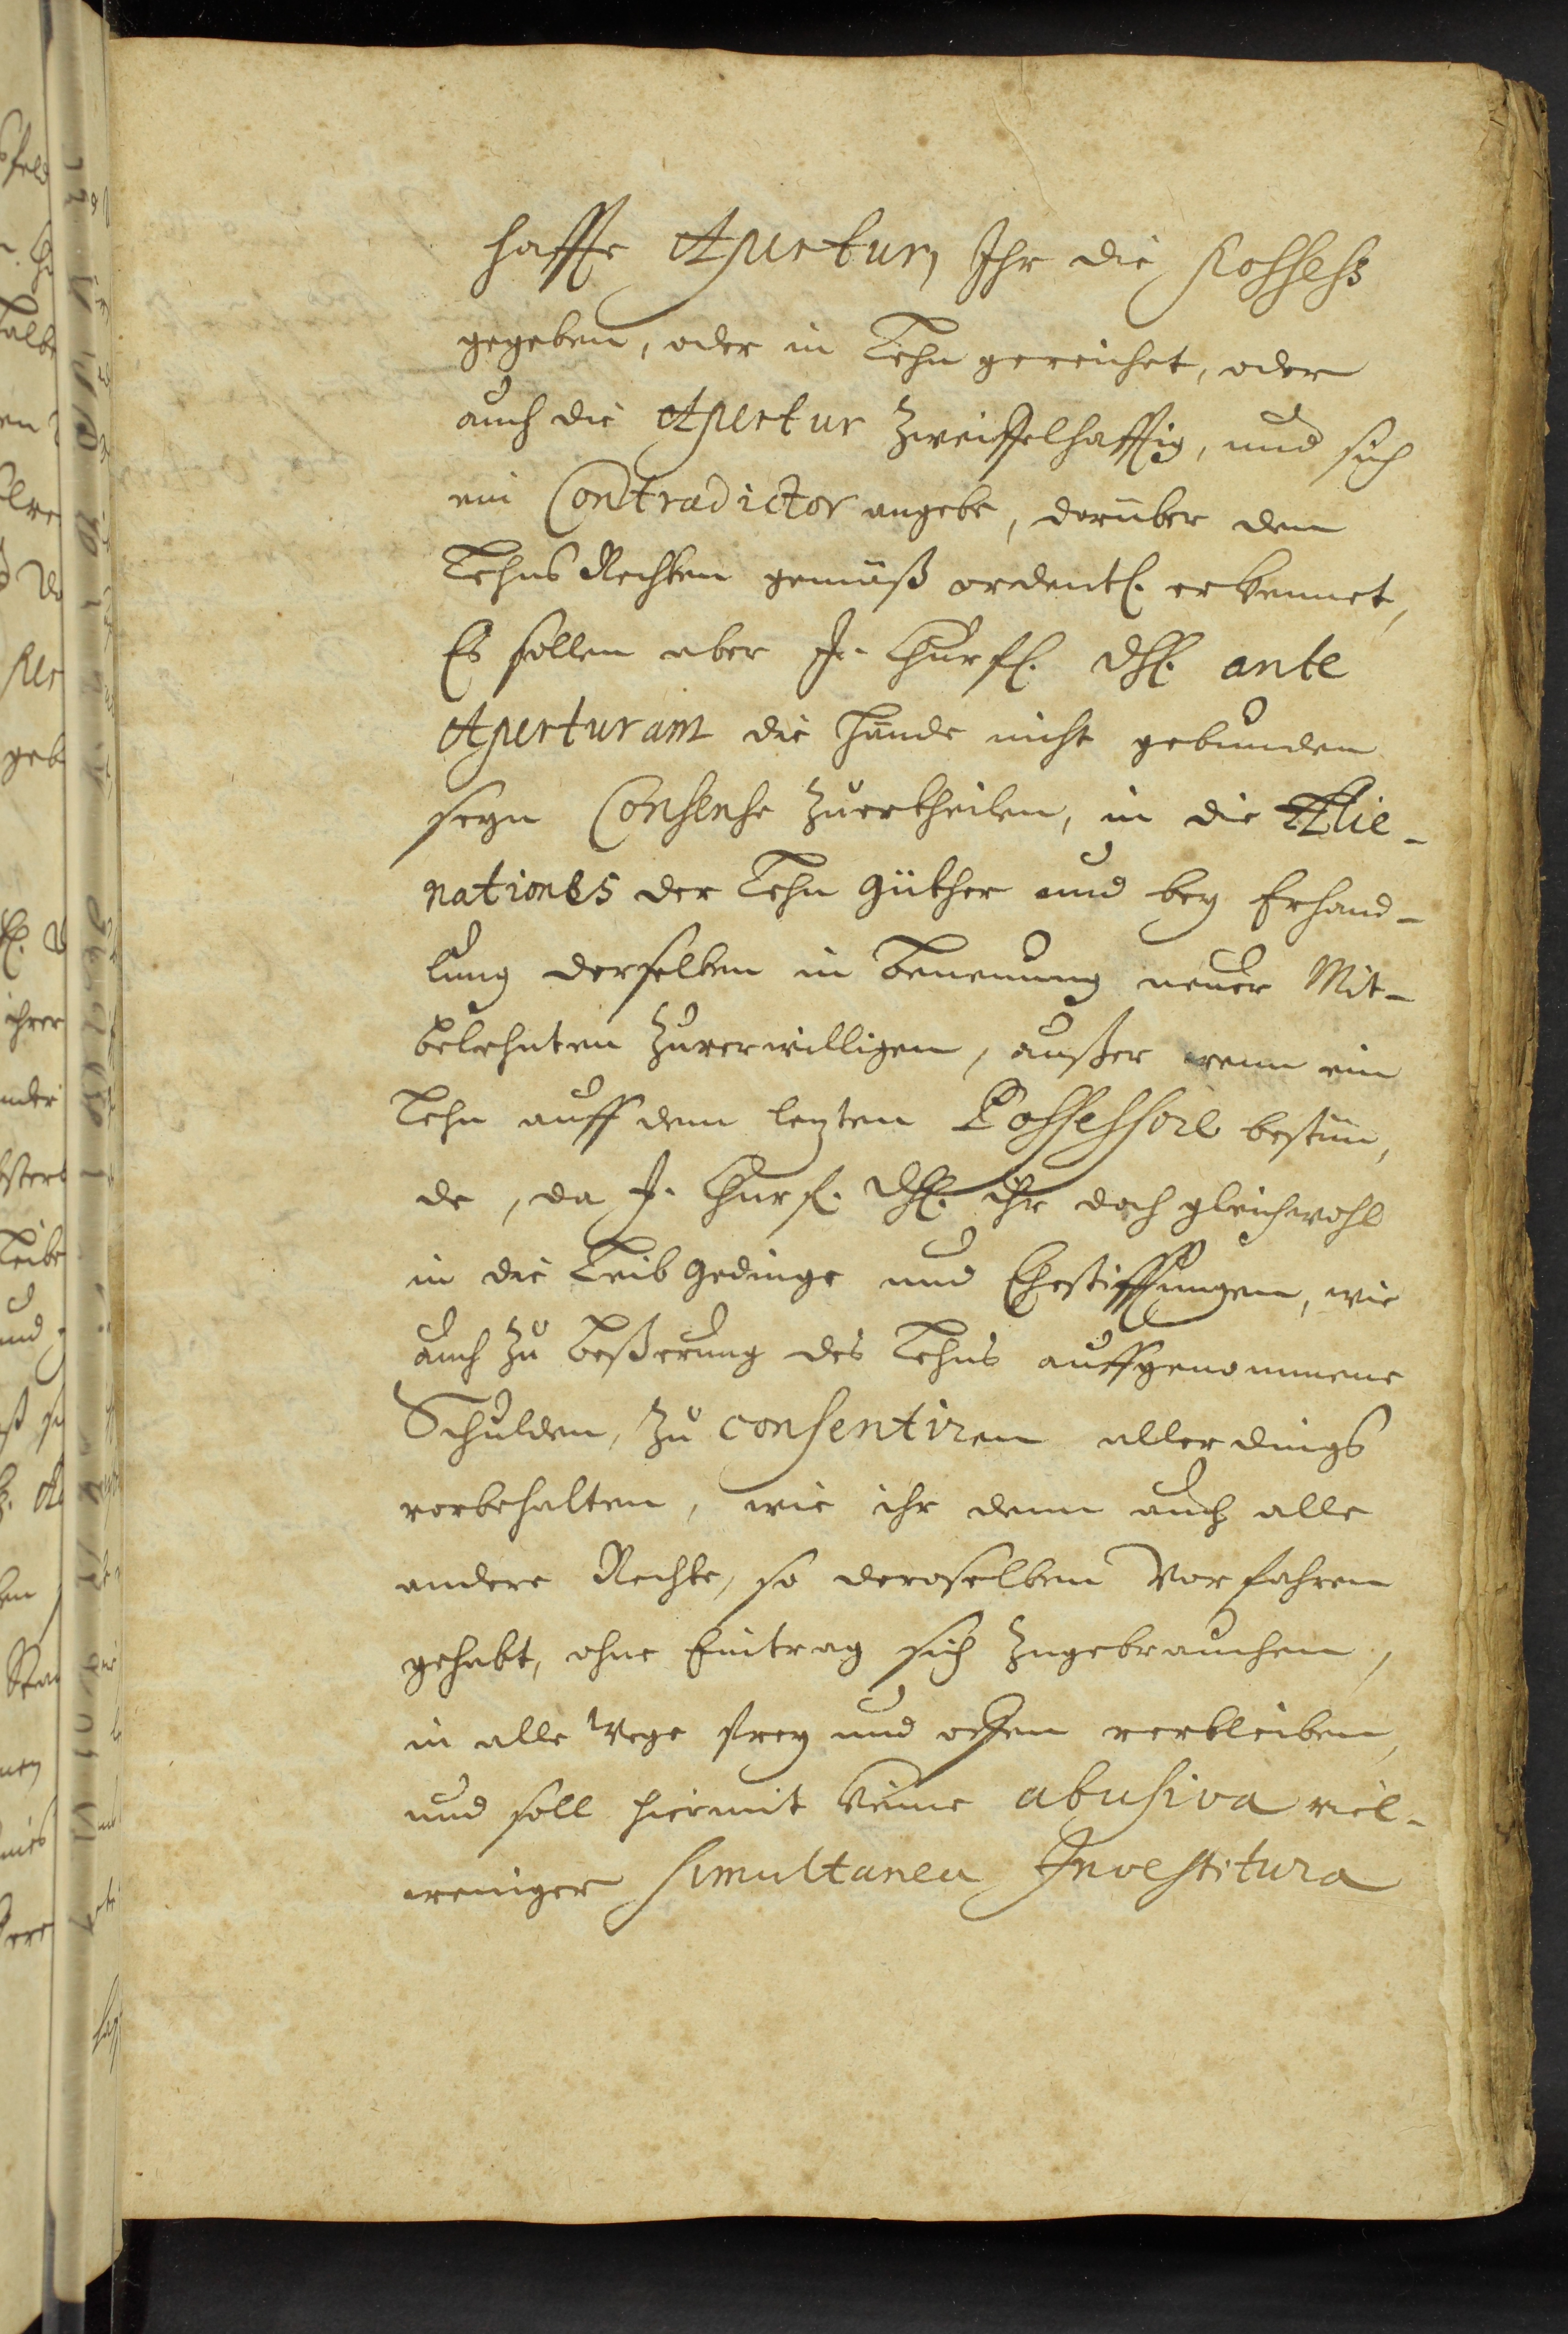 haffte Apertur, Ihr die Possess
gegeben, oder in Lehn gereichet, oder
auch die Apertur zweiffelhafftig, und sich
ein Contradictor angebe, darüber dem
Lehns Rechten gemäß ordentl. erkennet,
Es sollen aber Jr. Churfl. Dhl. ante
Aperturam die Hände nicht gebunden
seyn Consense zuertheilen, in die Alie-
nationes der Lehn Güther und bey Erhand-
lung derselben in Benennung neuer Mit-
belehnten zuverwilligen, außer wenn ein
Lehn auff dem lezten Possessore bestün,
de, da J. Churf. Dhl. ihr doch gleichwohl
in die Leib Gedinge und Ehestifftungen, wie
auch zu Beßerung des Lehns auffgenommene
Schulden, zu consentiren allerdings
vorbehalten, wie ihr denn auch alle
andere Rechte, so deroselben Vorfahren
gehabt, ohne Eintrag sich zugebrauchen,
in alle Wege frey und offen verbleiben,
und soll hiermit keine abusiva viel-
weniger simultanea Investitura